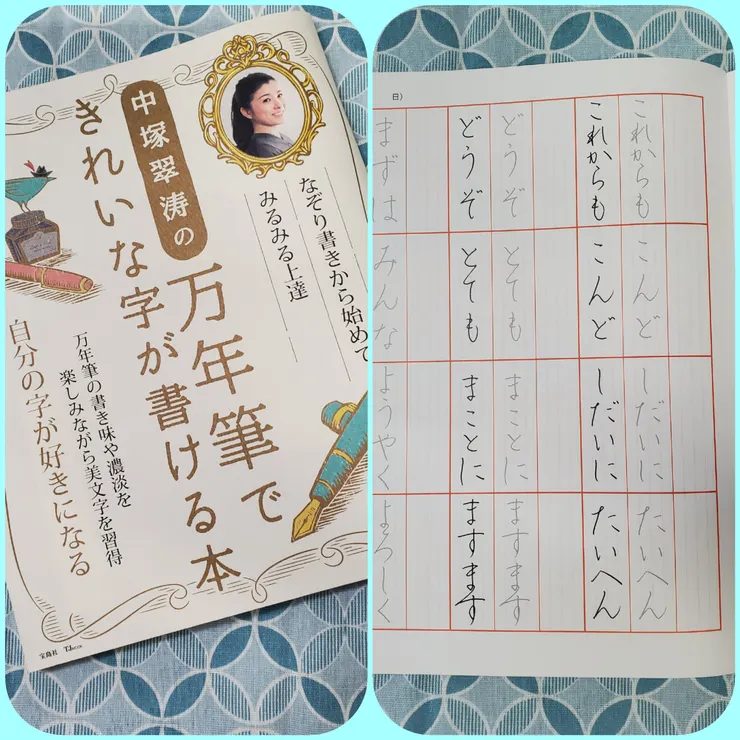 なぞり書きから始めて
みるみる上達
中塚翠涛の
万年筆で
きれいな字が書ける本
万年筆の書き味や濃淡を
楽しみながら美文字を習得
自分の字が好きになる
宝島社 TJMOOK
日）
これからも
こんど
しだいに
たいへん
これからも
こんど
しだいに
たいへん
どうぞ
とても
まことに
ますます
どうぞ
とても
まことに
ますます
まずは
みんな
ようやく
よろしく